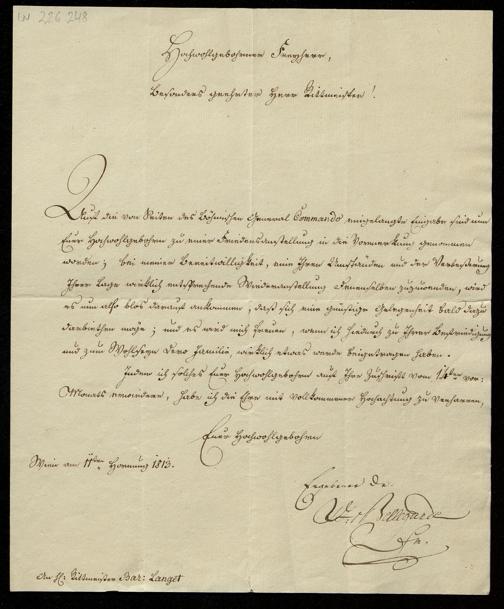 IN 226 248
Hochwohlgebohrner Freyherr,
Besonders geehrter Herr Rittmeister!
Auf die von Seiten des Böhmischen General Commando eingelangte Eingabe sind nun
Euer Hochwohlgebohren zu einer Friedensanstellung in die Vormerkung genommen
worden; bei meiner Bereitwilligkeit, eine Ihren Umständen und der Verbesserung
Ihrer Lage wirklich entsprechende Wiederanstellung Denenselben zuzuwenden, wird
es nun also blos darauf ankommen, daß sich eine günstige Gelegenheit bald dazu
darbiethen möge; und es wird mich freuen, wenn ich hiedurch zu Ihrer Befriedigung
und zum Wohlseyn Dero Familie, wirklich etwas werde beigetragen haben.
Indem ich solches Euer Hochwohlgebohren auf Ihre Zuschrift vom 14ten vor:
Monats erwiedere, habe ich die Ehre mit vollkommener Hochachtung zu verharren,
Euer Hochwohlgebohren
Wien am 11ten Hornung 1813.
Ergebener
Bellegarde
An H: Rittmeister Bar: Langet